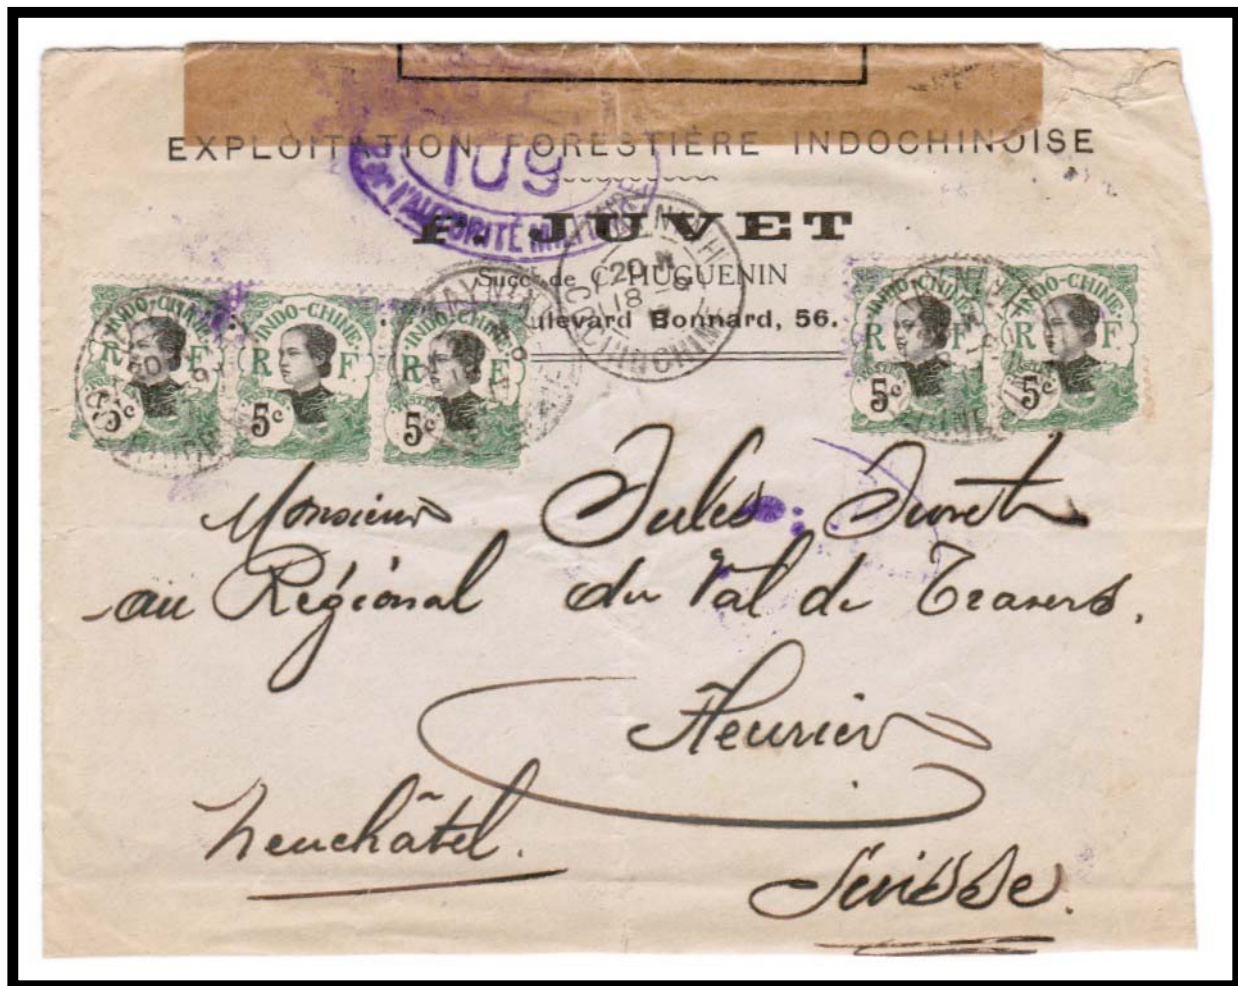 EXPLOITATION FORESTIÈRE INDOCHINOISE
109
L'AUTORITÉ
F. JUVET
Succr de C. HUGUENIN
Boulevard Bonnard, 56.
COCHINCHINE
INDO-CHINE
R F
5c
INDO-CHINE
R F
5c
INDO-CHINE
R F
5c
INDO-CHINE
R F
5c
INDO-CHINE
R F
5c
Monsieur Jules Juvet
au Régional du Val de Travers,
Fleurier
Neuchâtel.
Suisse.